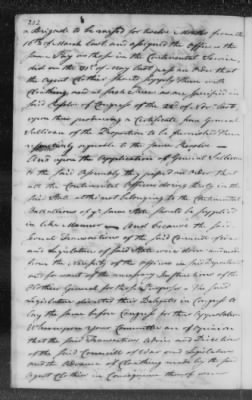 212
a Brigade to be raised for twelve Months from the
16th of March last and assigned the Officers the
same Pay as those in the Continental Service
did on the 31st of May last pass an Order that
the Agent Clothier should supply them with
Cloathing and at such Prices as are specified in
said Resolve of Congress of the 22d of Nov. last
upon their producing a Certificate from General
Sullivan of the Proportion to be furnished them
respectively agreeable to the same Resolve —
And upon the Application of General Sullivan
to the said Assembly they passed an Order that
all the Continental Officers doing Duty in the
said State altho not belonging to the Continental
Battalions of ye same State should be supplied
in like Manner — And because the said
several Transactions of the said Council of War
and Legislature of said State were done
from the Necessity of the Officers
and for want of the necessary Instructions of the
Clothier General for that Purpose & the said
Legislature directed their Delegates in Congress to
lay the same before Congress for their Approbation
Whereupon Your Committee are of Opinion
that the said Transactions Advice and Direction
of the said Council of War and Legislature
and the Advance of Cloathing made by the said
Agent Clothier in Consequence thereof were